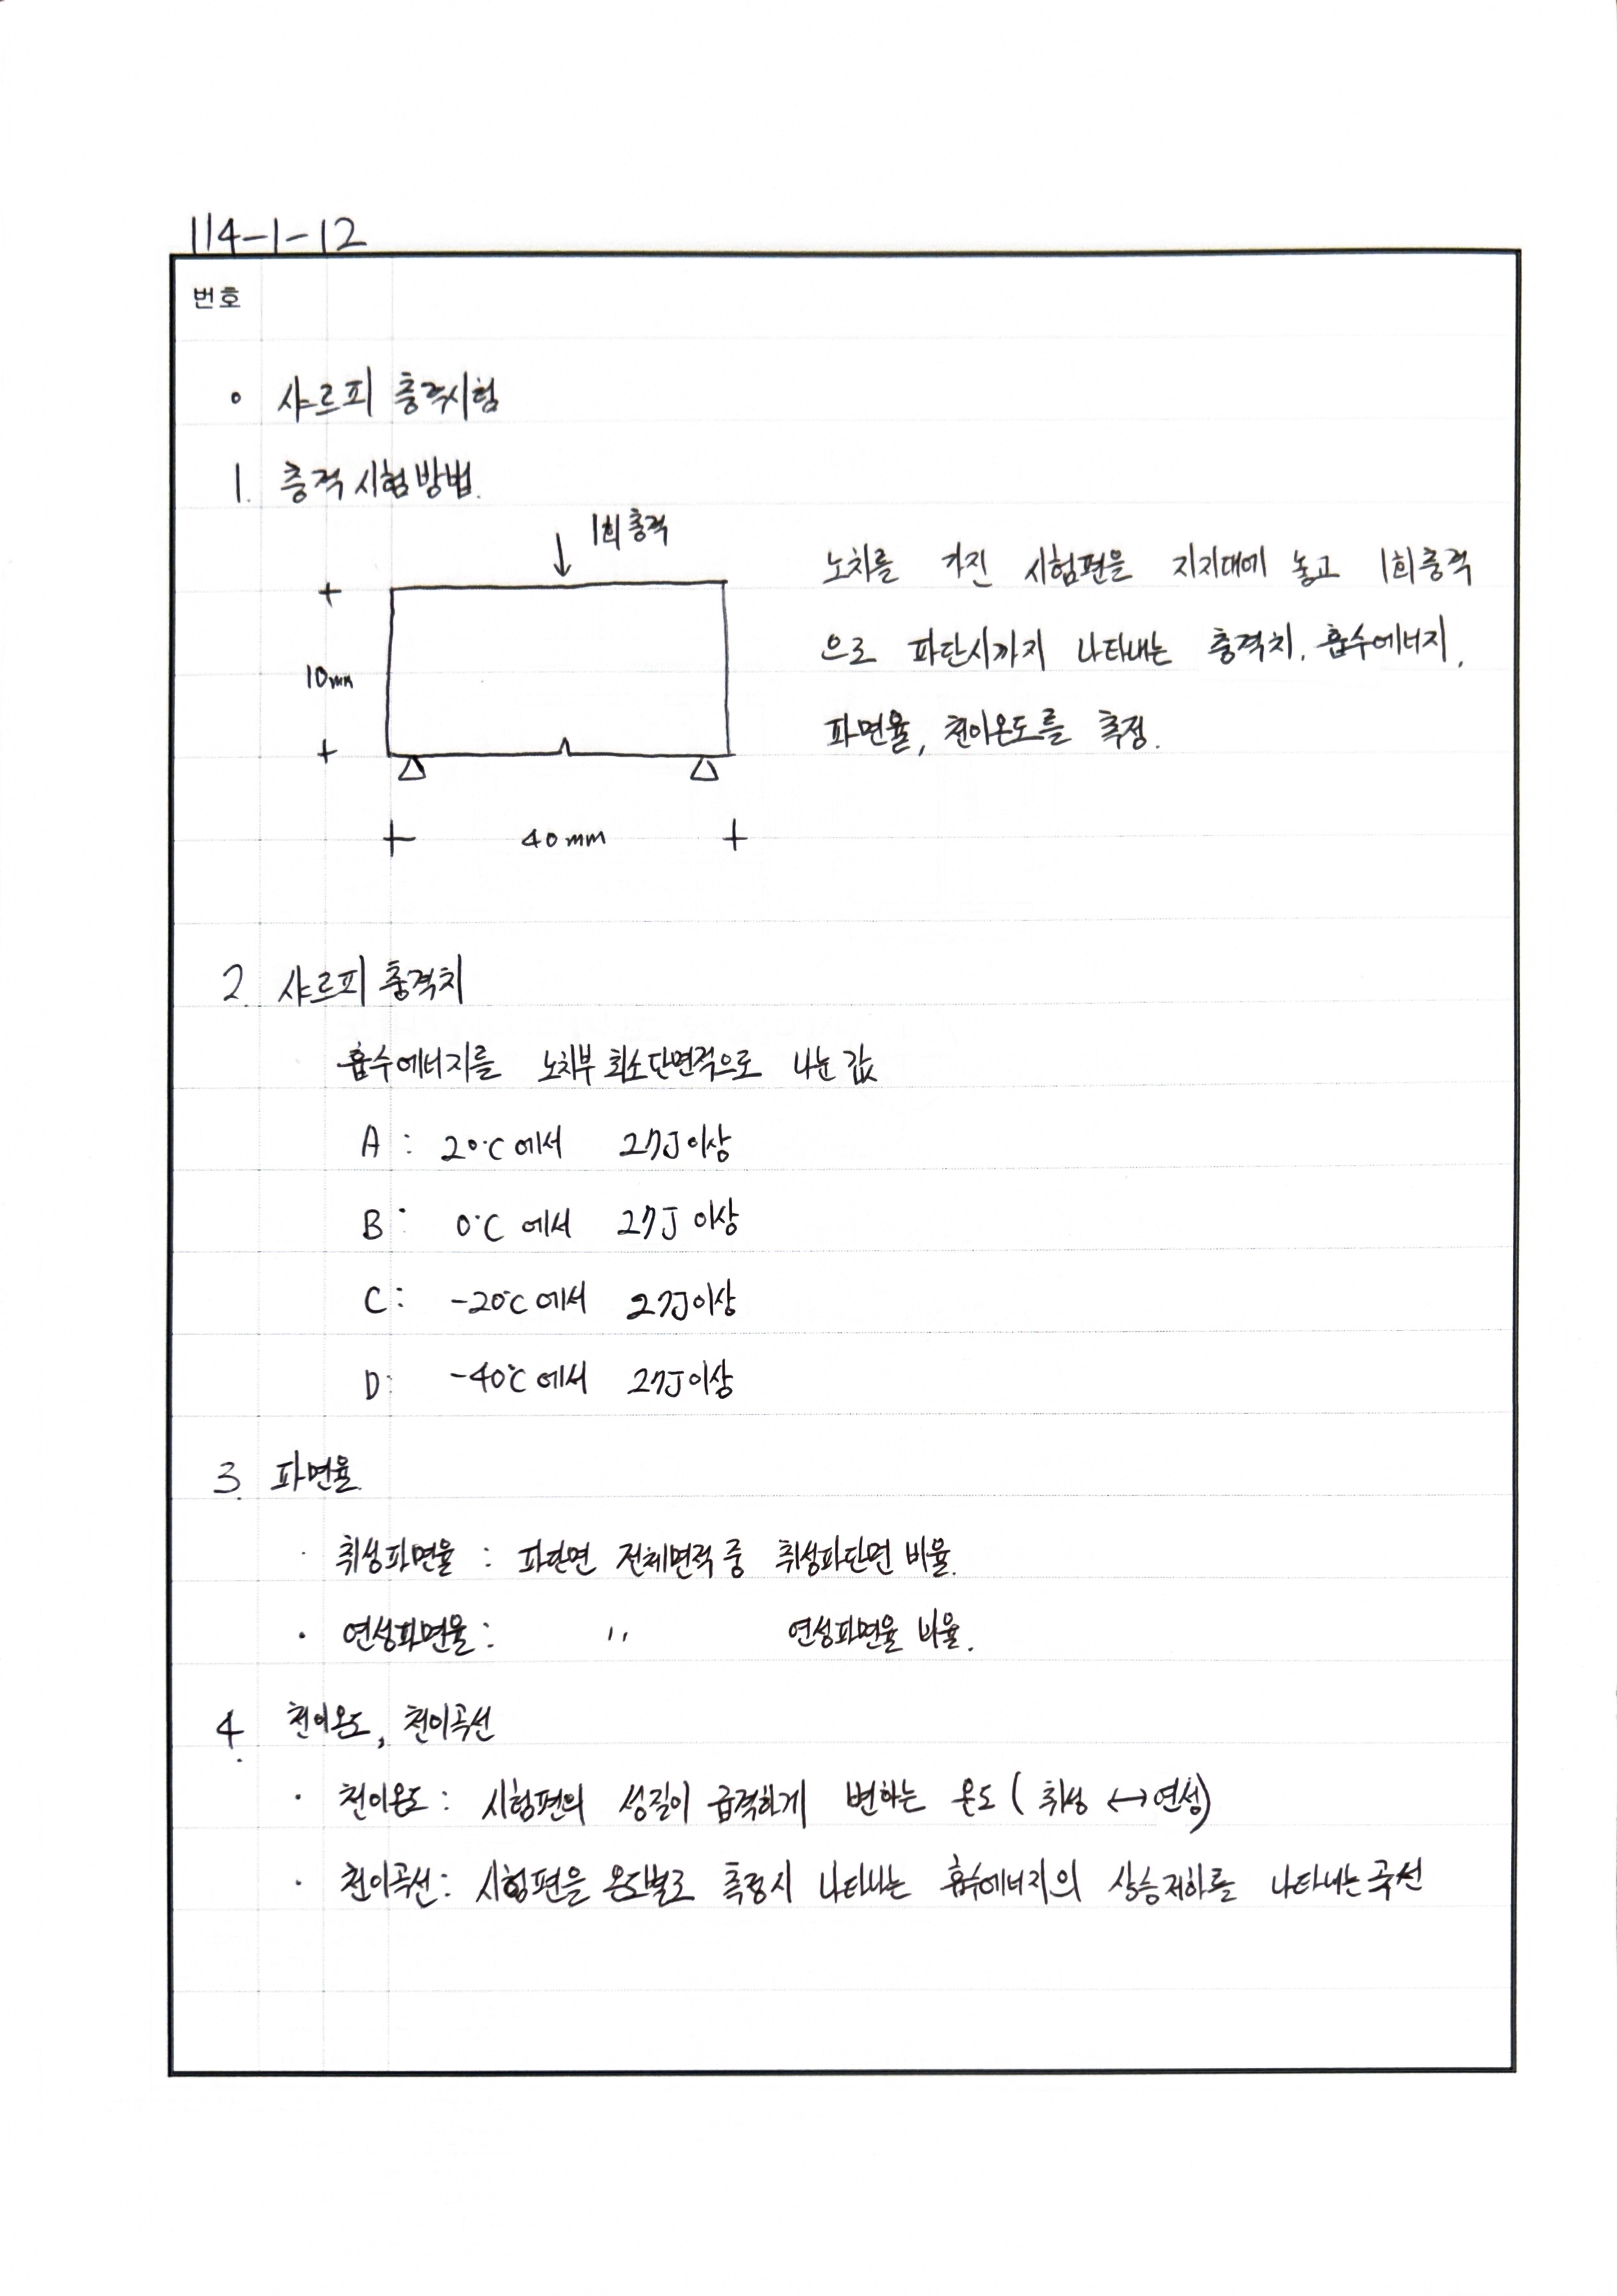 114-1-12
번호
o 샤르피 충격시험
1. 충격 시험방법.
1회 충격
10mm
40mm
노치를 가진 시험편을 지지대에 놓고 1회충격
으로 파단시까지 나타내는 충격치, 흡수에너지,
파면율, 천이온도를 측정.
2. 샤르피 충격치
흡수에너지를 노치부 최소단면적으로 나눈 값
A : 20℃에서 27J이상
B : 0℃에서 27J 이상
C : -20℃에서 27J이상
D : -40℃에서 27J이상
3. 파면율.
· 취성파면율 : 파단면 전체면적 중 취성파단면 비율.
· 연성파면율 : 〃 연성파면율 비율.
4. 천이온도, 천이곡선
· 천이온도 : 시험편의 성질이 급격하게 변하는 온도 ( 취성 ↔ 연성)
· 천이곡선 : 시험편을 온도별로 측정시 나타나는 흡수에너지의 상승저하를 나타내는 곡선